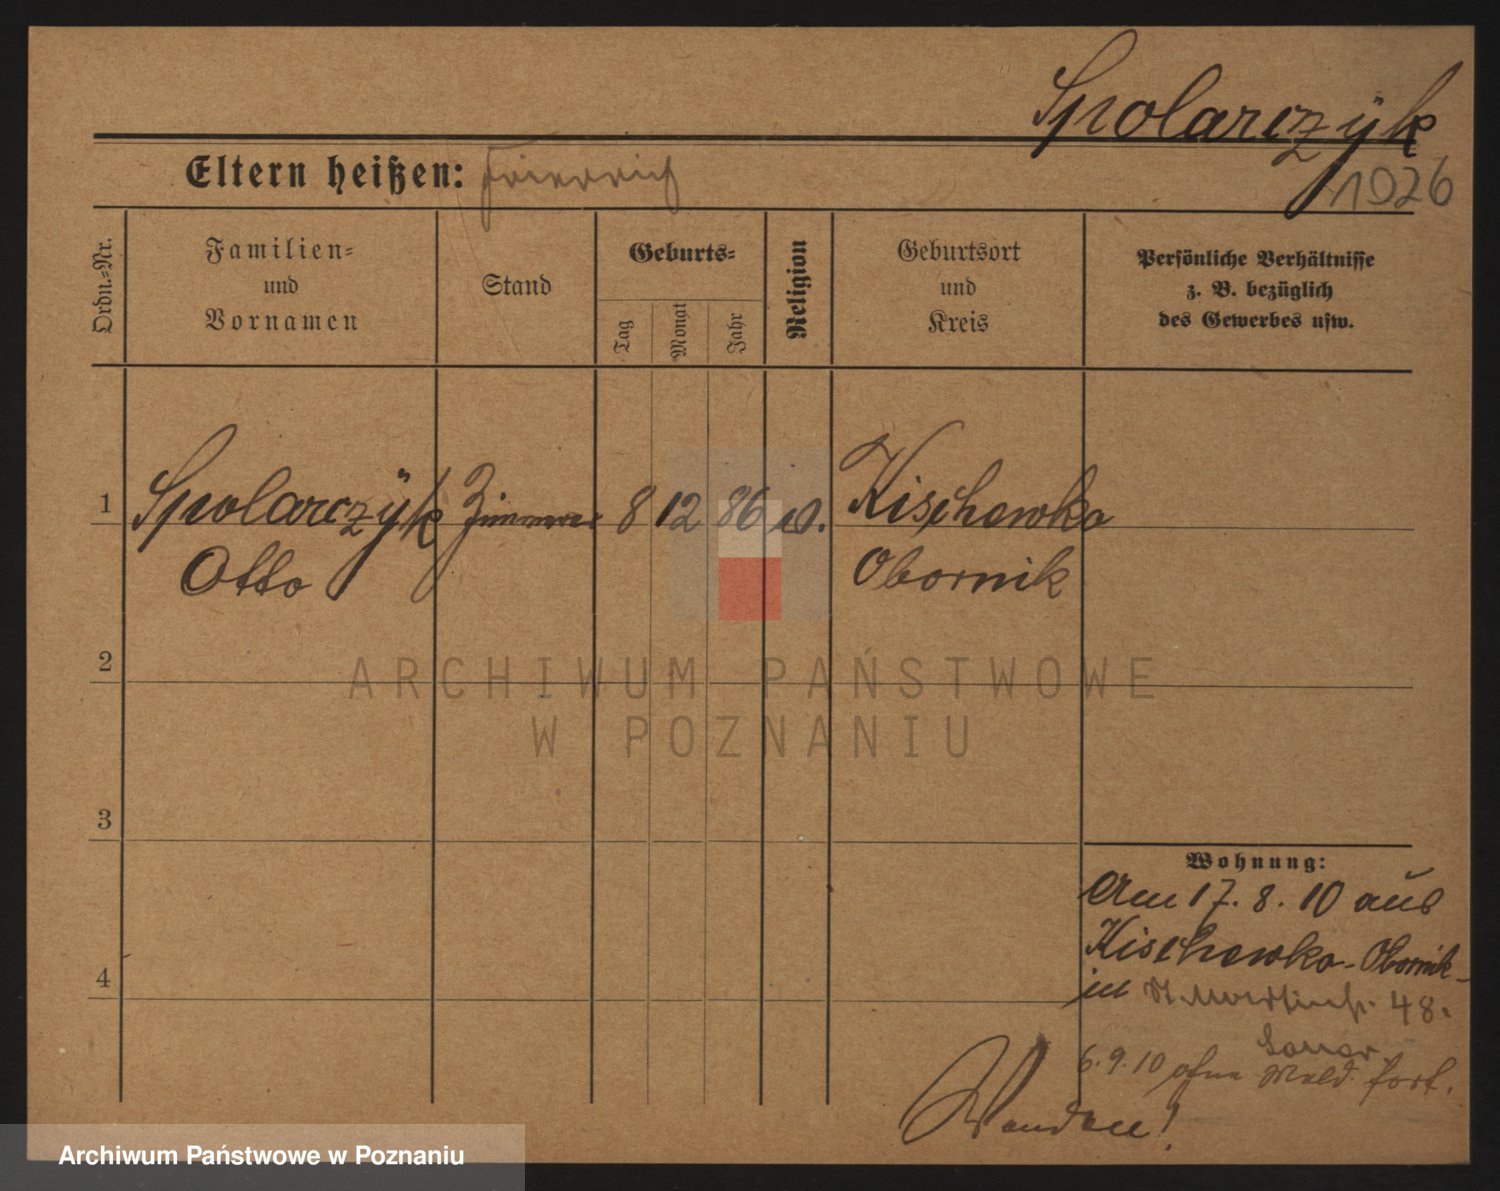 Spolarczyk
1926
Eltern heißen: Friedrich
Ordn.=Nr.
Familien=
und
Vornamen
Stand
Geburts=
Tag
Monat
Jahr
Religion
Geburtsort
und
Kreis
Persönliche Verhältnisse
z. B. bezüglich
des Gewerbes usw.
1
Spolarczÿk
Otto
8 12 86
Kischewko
Obornik
2
ARCHIWUM PAŃSTWOWE
W POZNANIU
3
Wohnung:
Am 17. 8. 10 aus
Kischewko-Obornik-
in St. Martinstr. 48.
4
6.9.10 ohne Meld. fort.
Archiwum Państwowe w Poznaniu